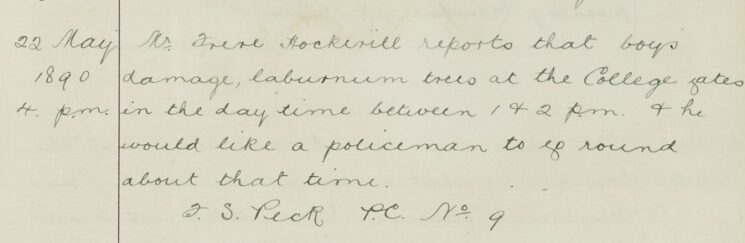 22 May Mr. Frere Hockerill reports that boys
1890 damage, laburnum trees at the College gates
4. p.m. in the day time between 1 & 2 p.m. & he
would like a policeman to go round
about that time.
F. S. Peck P.C. No. 9